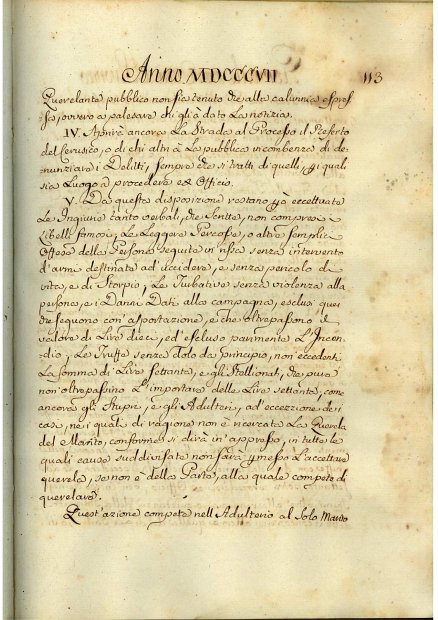 Anno MDCCCVII
113
Querelante pubblico non sia tenuto che alla calunnia espres-
sa, ovvero a palesare chi gli à dato la notizia.
IV. Aprirà ancora la Strada al Processo il Referto
del Cerusico, o di chi altri à la pubblica incombenza di de-
nunziare i Delitti, sempre che si tratti di quelli, pi quali
sia Luogo a procedere ex Officio.
V. Da questa disposizione restano però eccettuate
Le Ingiurie tanto verbali, che scritte, non compresi i
Libelli famosi, Le Leggere Percosse, o altre semplici
Offese della Persona seguite in rissa senza intervento
d'armi destinate ad uccidere, e senza pericolo di
vita, e di Storpio, Le Turbative senza violenza alla
persona, i Danni Dati alla campagna, esclusi quei
che seguono con asportazione, e che oltrepassono il
valore di Lire dieci, ed escluso parimente L'Incen-
dio, Le Truffe senza dolo da principio, non eccedenti
La somma di Lire settanta, e gli Stellionati, che pure
non oltrepassino L'importare delle Lire settante, come
ancora gli Stupri, e gli Adulteri, ad eccezzione dei
casi, nei quali di ragione non è ricercata La Querela
del Marito, conforme si dirà in appresso, in tutte le
quali cause suddivisate non sarà pmesso L'accettare
querela, se non è della Parte, alla quale compete di
querelare.
Quest'azione compete nell'Adulterio al Solo Marito